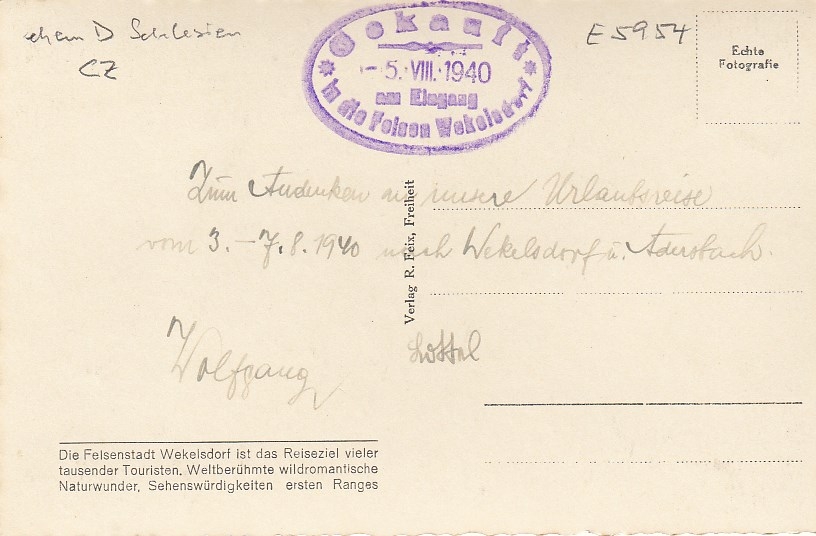 ehem D Schlesien
CZ
Gekauft
- 5. VIII. 1940
am Eingang
in die Felsen Wekelsdorf
E 5954
Echte
Fotografie
Zum Andenken an unsere Urlaubsreise
vom 3. - 7. 8. 1940 nach Wekelsdorf u. Adersbach.
Wolfgang
Lottel
Verlag R. Feix, Freiheit
Die Felsenstadt Wekelsdorf ist das Reiseziel vieler
tausender Touristen. Weltberühmte wildromantische
Naturwunder, Sehenswürdigkeiten ersten Ranges